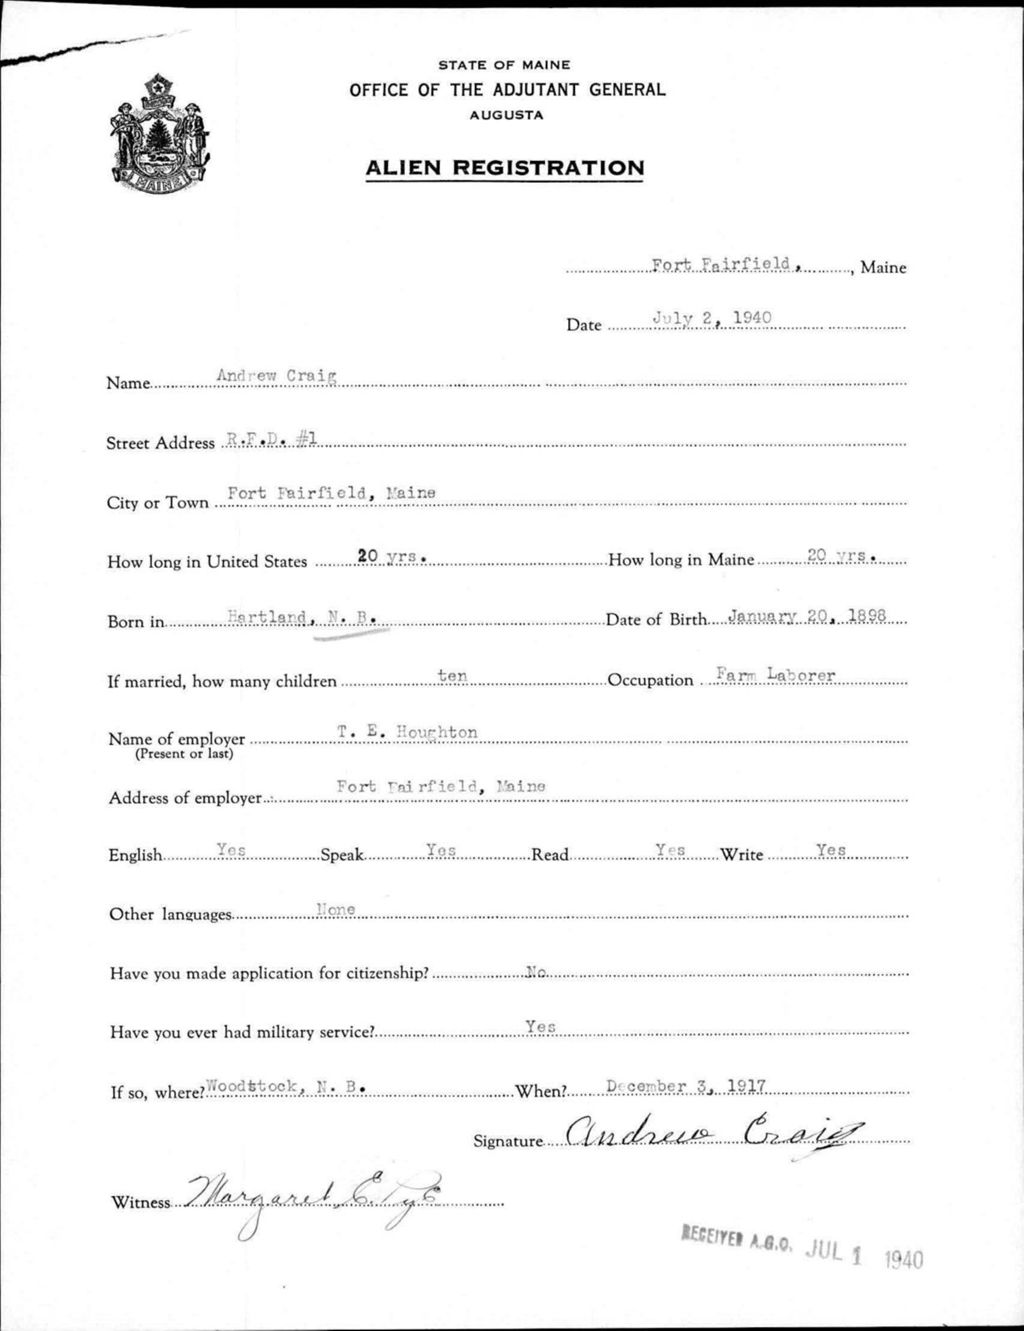 STATE OF MAINE
OFFICE OF THE ADJUTANT GENERAL
AUGUSTA
ALIEN REGISTRATION
MAINE
Fort Fairfield, , Maine
Date July 2, 1940
Name Andrew Craig
Street Address R.F.D. #1
City or Town Fort Fairfield, Maine
How long in United States 20 yrs. How long in Maine 20 yrs.
Born in Hartland, N. B. Date of Birth January 20, 1898
If married, how many children ten Occupation Farm Laborer
Name of employer T. E. Houghton
(Present or last)
Address of employer Fort Fairfield, Maine
English Yes Speak Yes Read Yes Write Yes
Other languages None
Have you made application for citizenship? No
Have you ever had military service? Yes
If so, where? Woodstock, N. B. When? December 3, 1917
Signature Andrew Craig
Witness Margaret E. Pye
RECEIVED A.G.O. JUL 1 1940